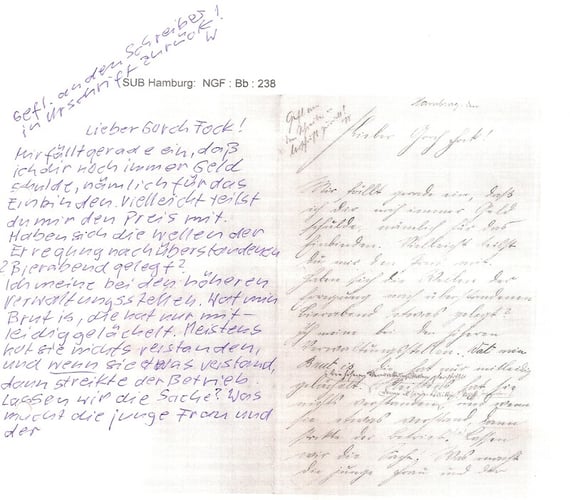 Gefl. an den Schreiber
in Urschrift zurück!
W
SUB Hamburg: NGF : Bb : 238
Lieber Gorch Fock!
Mir fällt gerade ein, daß
ich dir noch immer Geld
schulde, nämlich für das
Einbinden. Vielleicht teilst
du mir den Preis mit.
Haben sich die Wellen der
Erregung nach überstandenen
? Bierabend gelegt?
Ich meine bei den höheren
Verwaltungsstellen. Wat min
Brut is, die hat nur mit-
leidig gelächelt. Meistens
hat sie nichts verstanden,
und wenn sie etwas verstand,
dann streikte der Betrieb.
Lassen wir die Sache? Was
macht die junge Frau und
der
Hamburg, den
Lieber Gorch Fock!
Mir fällt gerade ein, daß
ich dir noch immer Geld
schulde, nämlich für das
Einbinden. Vielleicht teilst
du mir den Preis mit.
Haben sich die Wellen der
Erregung nach überstandenen
Bierabend gelegt?
Ich meine bei den höheren
Verwaltungsstellen. Wat min
Brut is, die hat nur mitleidig
gelächelt. Meistens hat sie
nichts verstanden, und wenn
sie etwas verstand, dann
streikte der Betrieb. Lassen
wir die Sache! Was macht
die junge Frau und der